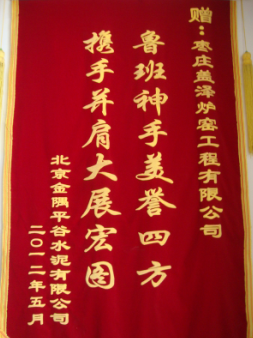 赠：枣庄盖泽炉窑工程有限公司
鲁班神手美誉四方
携手并肩大展宏图
北京金隅平谷水泥有限公司
二〇一二年五月